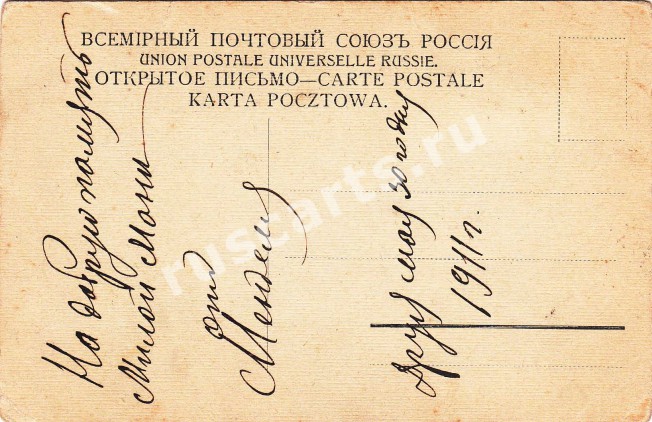 ВСЕМІРНЫЙ ПОЧТОВЫЙ СОЮЗЪ РОССІЯ
UNION POSTALE UNIVERSELLE RUSSIE.
ОТКРЫТОЕ ПИСЬМО—CARTE POSTALE
KARTA POCZTOWA.
На добрую память
Милой Мани
отъ
Менделя
мая 30 годку
1911 г.
ruscarts.ru